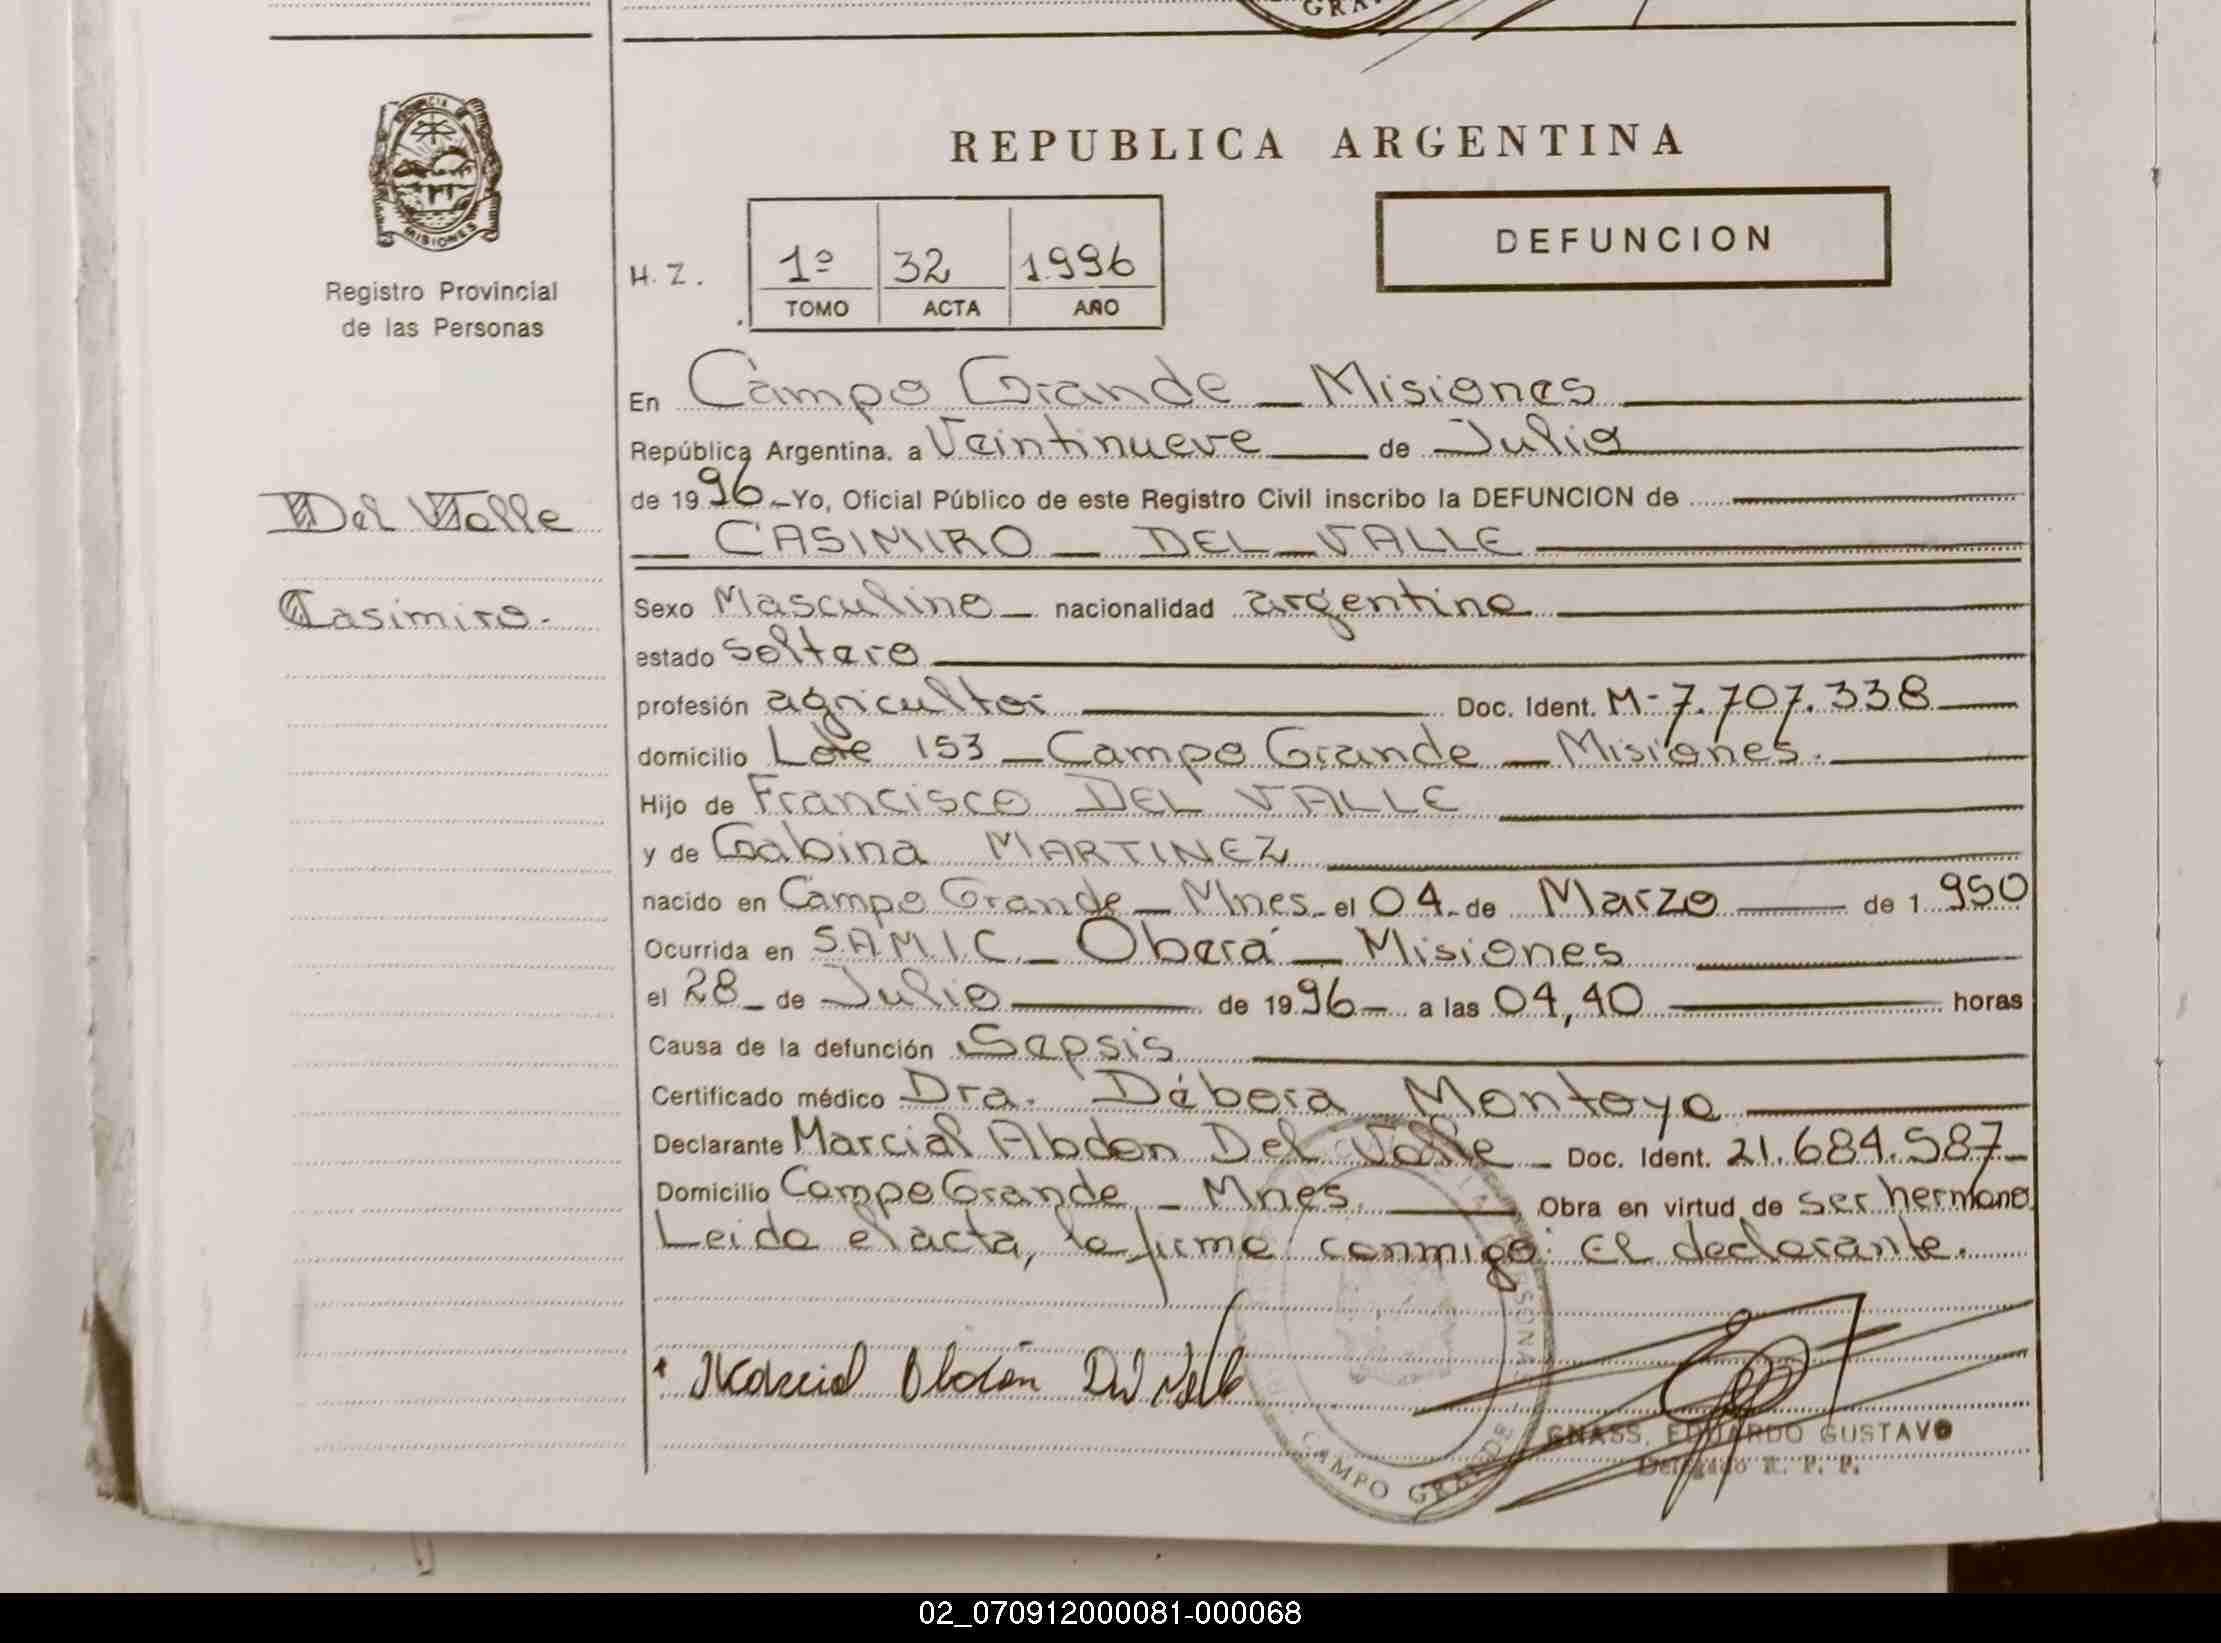 GRA
PROVINCIA
MISIONES
Registro Provincial
de las Personas
Del Valle
Casimiro.
REPUBLICA ARGENTINA
H. Z.
1º 32 1996
TOMO ACTA AÑO
DEFUNCION
En Campo Grande _ Misiones
República Argentina. a Veintinueve de Julio
de 1996._Yo, Oficial Público de este Registro Civil inscribo la DEFUNCION de
_ CASIMIRO _ DEL _ VALLE
Sexo Masculino _ nacionalidad argentino
estado soltero
profesión agricultor Doc. Ident. M-7.707.338
domicilio Lote 153 _ Campo Grande _ Misiones.
Hijo de Francisco DEL VALLE
y de Gabina MARTINEZ
nacido en Campo Grande _ Mnes_ el 04_ de Marzo de 1950
Ocurrida en S.A.M.I.C._ Oberá _ Misiones
el 28_ de Julio de 1996_ a las 04,40 horas
Causa de la defunción Sepsis
Certificado médico Dra. Débora Montoya
Declarante Marcial Abdon Del Valle _ Doc. Ident. 21.684.587_
Domicilio Campo Grande _ Mnes. Obra en virtud de ser hermano
Leida el acta, la firma conmigo: El declarante.
Marcial Abdón Del Valle
CAMPO GRANDE
GNASS, EDUARDO GUSTAVO
Delegado R. P. P.
02_070912000081-000068